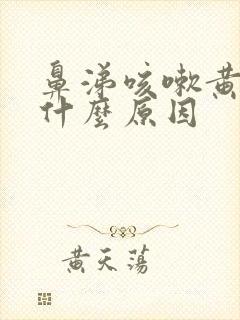 鼻涕咳嗽黄
什麼原因
黄天蕩